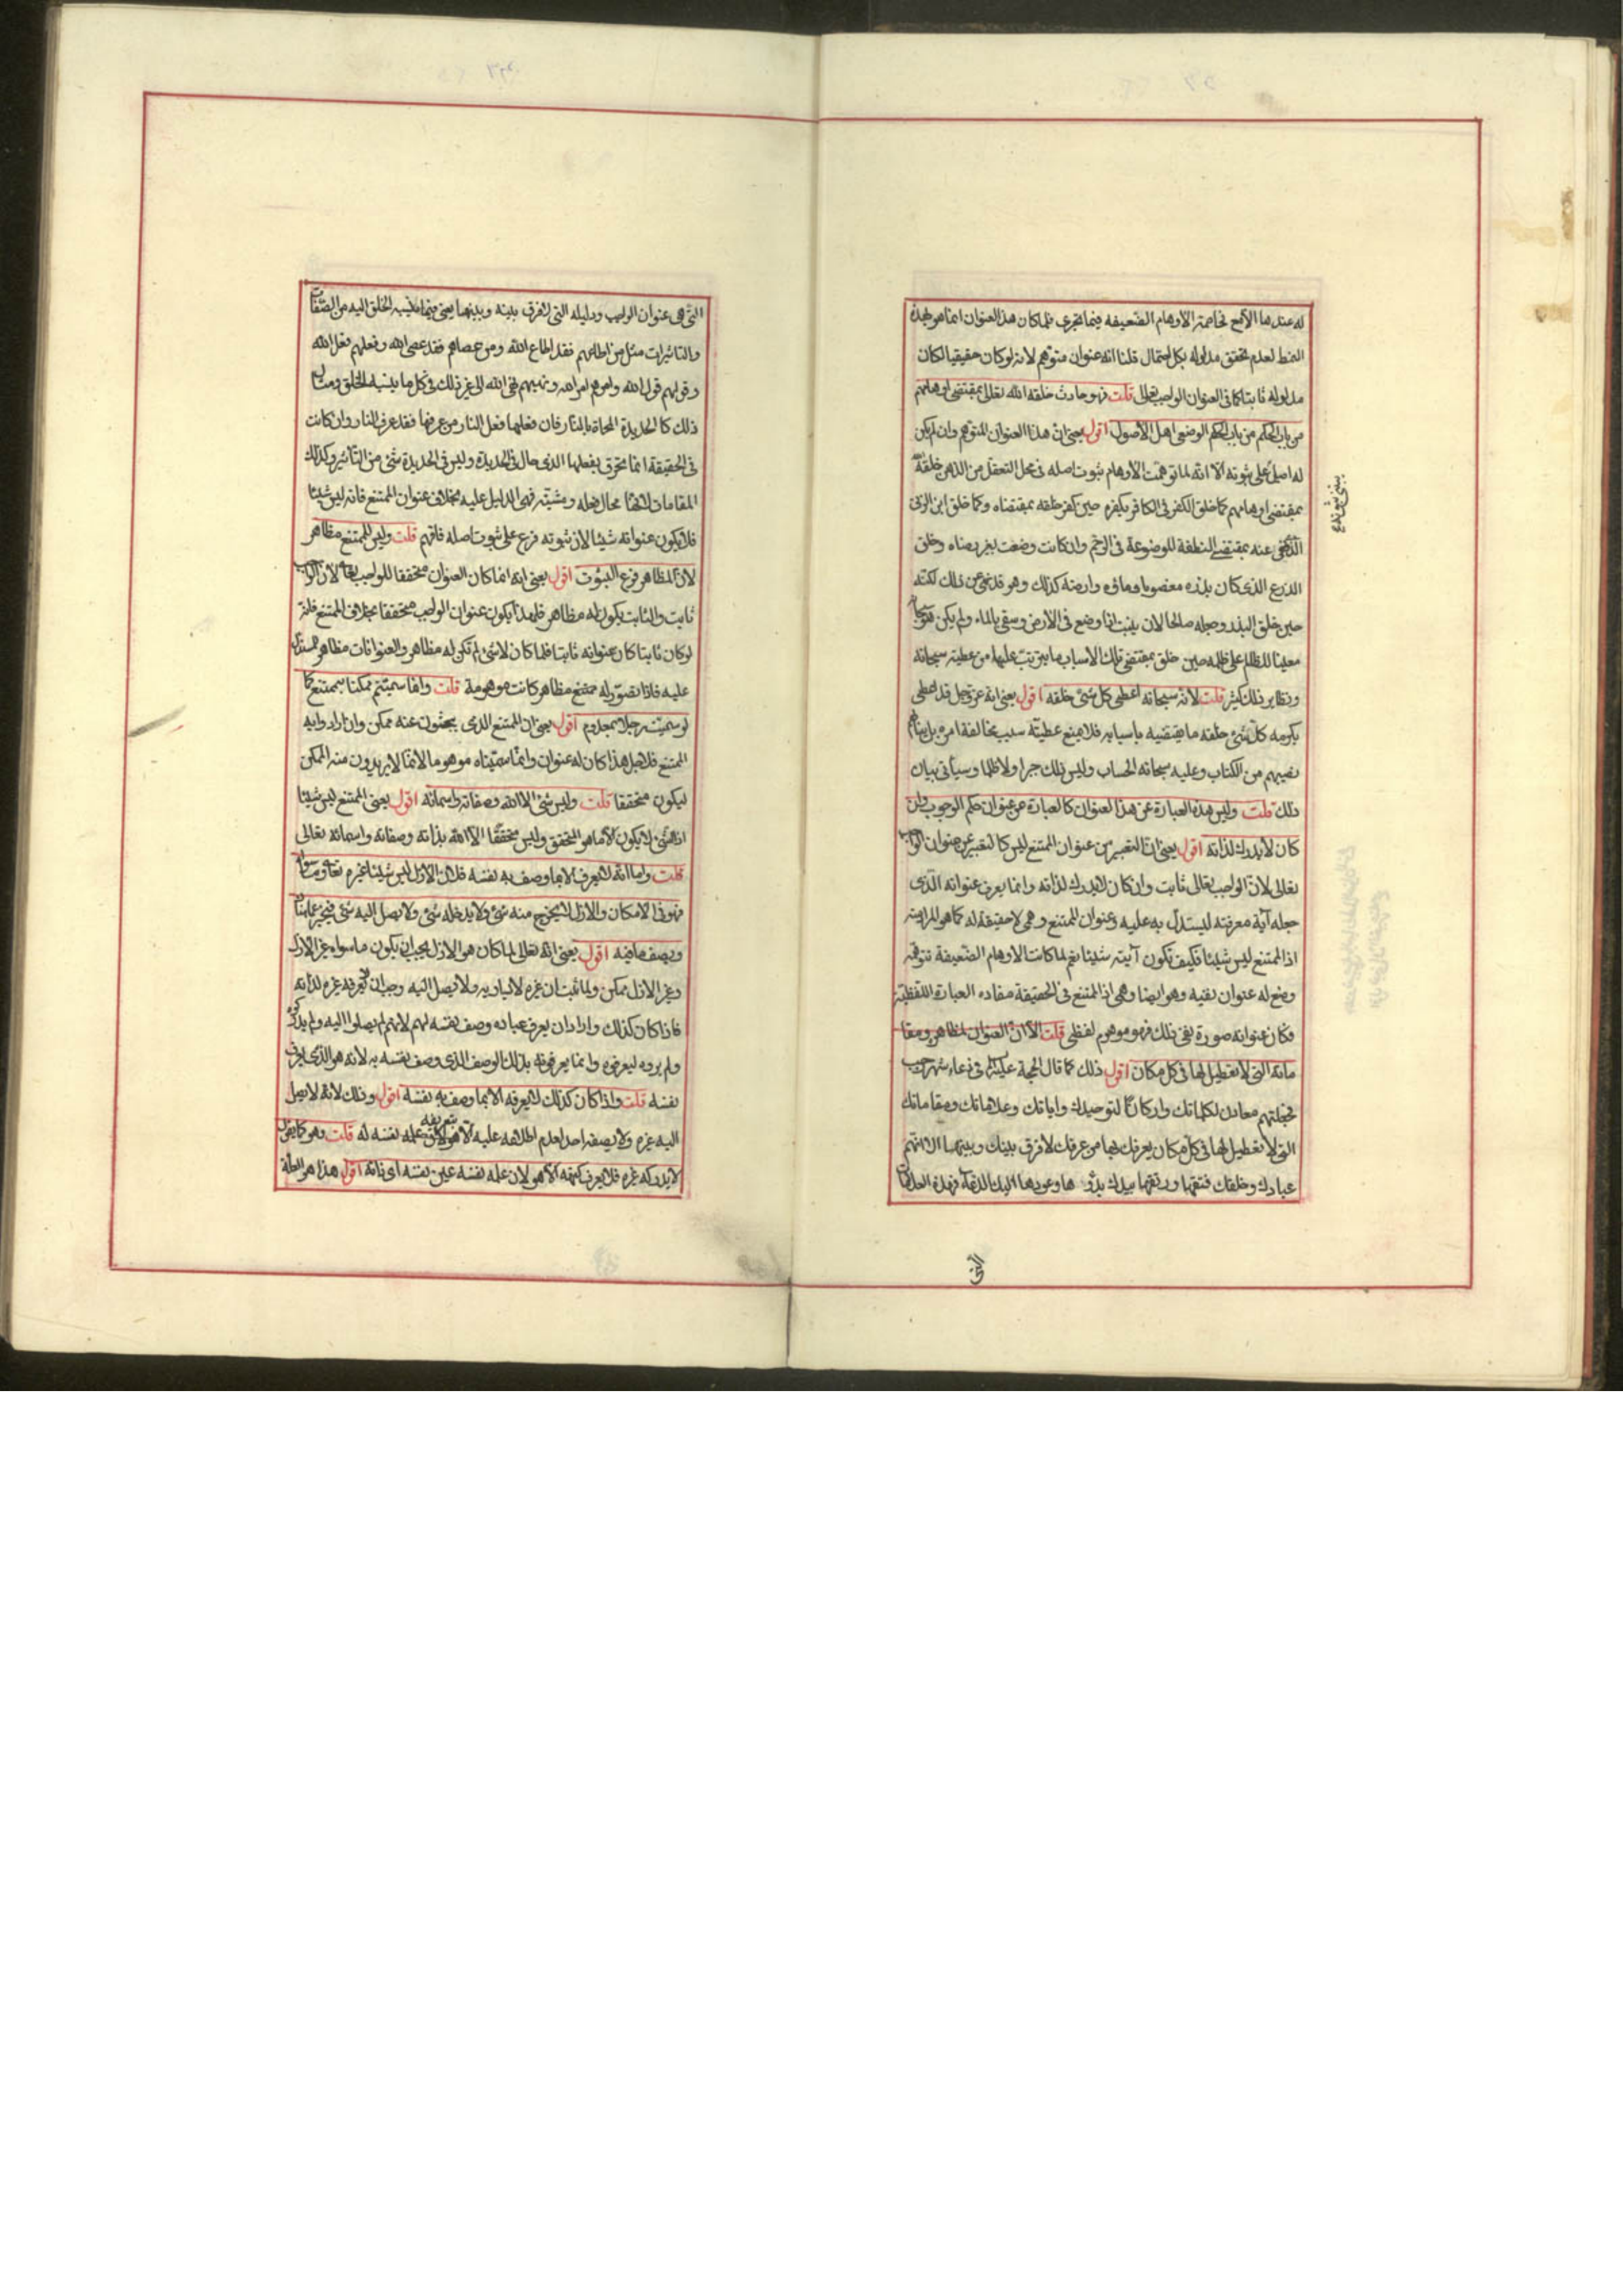 له عندها الامع تخاصمة الأوهام الضعيفه فيما تجري فلما كان هذا العنوان انما هو لهذا
النمط لعدم تحقق مدلوله بكل احتمال قلنا انه عنوان متوهم لانه لو كان حقيقيا لكان
مدلوله ثابتا كما فى العنوان الواجب تعالى قلت فهو حادث خلقه الله تعالى بمقتضى اوهامهم
من باب الحكم من باب الحكم الوضعى اهل الأصول اقول يعنى ان هذا العنوان المتوهم وان لم يكن
له اصل على ثبوته الا انه لما توهمت الأوهام ثبوت اصله فى محل التعقل من الذهن خلقه
بمقتضى اوهامهم كما خلق الكفر فى الكافر بكفره حين كفر خلقه بمقتضاه وكما خلق ابن الزنى
الذى نهى عنه بمقتضى النطفة الموضوعة فى الرحم وان كانت وضعت بغير رضاه وخلق
الزرع الذى كان بذره مغصوبا وماؤه وارضه كذلك وهو قد نهى عن ذلك لكنه
حين خلق البذر وجعله صالحا لان ينبت اذا وضع فى الأرض وسقى بالماء ولم يكن هو سبحانه
معينا للظالم على ظلمه حين خلق بمقتضى تلك الاسباب ما يترتب عليها من عطيته سبحانه
ونظاير ذلك كثير قلت لانه سبحانه اعطى كل شئ خلقه اقول يعنى انه عز وجل قد اعطى
بكرمه كل شئ خلقه ما يقتضيه باسبابه فلا يمنع عطيته سبب مخالفة امره بل ينالهم
نصيبهم من الكتاب وعليه سبحانه الحساب وليس ذلك جبرا ولا ظلما وسيأتى بيان
ذلك قلت وليس هذه العبارة عن هذا العنوان كالعبارة عن عنوان حكم الوجوب وان
كان لا يدرك لذاته اقول يعنى ان التعبير عن عنوان الممتنع ليس كالتعبير عن عنوان الواجب
تعالى لان الواجب تعالى ثابت وان كان لا يدرك لذاته وانما يعرف عنوانه الذى
جعله آية معرفته ليستدل به عليه وعنوان الممتنع وهمى لا حقيقة له كما هو المراد منه
اذ الممتنع ليس شيئا فكيف تكون آيته شيئا نعم لما كانت الاوهام الضعيفة تتوهم
وضع له عنوان نفيه وهو ايضا وهمى اذ الممتنع فى الحقيقة مفاده العبارة اللفظية
فكان عنوانه صورة نفى ذلك فهو موهوم لفظى قلت الا ان العنوان لمظاهره ومقا
ماته التى لا تعطيل لها فى كل مكان اقول ذلك كما قال الحجة عليه السلام فى دعاء شهر رجب
فجعلتهم معادن لكلماتك واركانا لتوحيدك واياتك وعلاماتك ومقاماتك
التى لا تعطيل لها فى كل مكان يعرفك بها من عرفك لا فرق بينك وبينها الا انهم
عبادك وخلقك فتقها ورتقها بيدك بدؤها وعودها اليك الدعاء فهذه العلامات
التى
التى هى عنوان الواجب ودليله التى لا فرق بينه وبينها يعنى فيما ينسب الخلق اليه من الصفات
والتاثيرات مثل من اطاعهم فقد اطاع الله ومن عصاهم فقد عصى الله وفعلهم فعل الله
وقولهم قول الله وامرهم امر الله ونهيهم نهى الله الى غير ذلك فى كل ما ينسبه الخلق ومثال
ذلك كالحديدة المحماة بالنار فان فعلها فعل النار من عرفها فقد عرف النار وان كانت
فى الحقيقة انما تحرق بفعلها الذى حال فى الحديدة وليس فى الحديدة شئ من التأثير وكذلك
المقامات لانها محال فعله ومشيته فهى الدليل عليه بخلاف عنوان الممتنع فانه ليس شيئا
فلا يكون عنوانه شيئا لان ثبوته فرع على ثبوت اصله فافهم قلت وليس للممتنع مظاهر
لان المظاهر فرع الثبوت اقول يعنى انه انما كان العنوان متحققا للواجب تعالى لان الواجب
ثابت والثابت يكون له مظاهر فلهذا يكون عنوان الواجب متحققا بخلاف الممتنع فلانه
لو كان ثابتا كان عنوانه ثابتا فلما كان لا شئ لم تكن له مظاهر والعنوانات مظاهر المستدل
عليه فاذا تصور له ممتنع مظاهر كانت موهومة قلت وانما سميتم ممكنا بممتنع كما
لو سميت رجلا بمعدوم اقول يعنى ان الممتنع الذى يبحثون عنه ممكن وان ارادوا به
الممتنع فلاجل هذا كان له عنوان وانما سميناه موهوما لانها لا يريدون منه الممكن
ليكون متحققا قلت وليس شئ الا الله وصفاته واسمائه اقول يعنى الممتنع ليس شيئا
اذ الشئ لا يكون الا ما هو المتحقق وليس متحققا الا الله بذاته وصفاته واسمائه تعالى
قلت واما انه لا يعرف الا بما وصف به نفسه فلان الأزل ليس شيئا غيره تعالى وما سواه
فهو فى الامكان والازل لا يخرج منه شئ ولا يدخله شئ ولا يصل اليه شئ فيخبر عما هناك
ويصف ما فيه اقول يعنى انه تعالى لما كان هو الازل يجب ان يكون ما سواه غير الازل
وغير الازل ممكن ولما ثبت ان غيره لا يساويه ولا يصل اليه وجب ان لا يعرفه غيره لذاته
فاذا كان كذلك واراد ان يعرف عباده وصف نفسه لهم لانهم لم يصلوا اليه ولم يدركوه
ولم يروه ليعرفوه وانما يعرفونه بذلك الوصف الذى وصف نفسه به لانه هو الذى يعرف
نفسه قلت واذا كان كذلك لا يعرفه الا بما وصف به نفسه اقول وذلك لانه لا يصل
اليه غيره ولا يصفه احد لعدم اطلاعه عليه الا هو لان علمه نفسه له قلت وهو كما يقول
لا يدركه غيره فلا يعرف كنهه الا هو لان علمه نفسه عين نفسه اى ذاته اقول هذا هو العلة